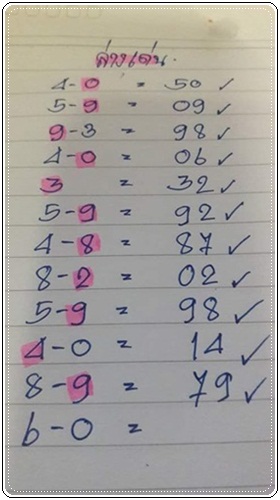 ล่างเด่น.
4-0 = 50 ✓
5-9 = 09 ✓
9-3 = 98 ✓
4-0 = 06 ✓
3 = 32 ✓
5-9 = 92 ✓
4-8 = 87 ✓
8-2 = 02 ✓
5-9 = 98 ✓
4-0 = 14 ✓
8-9 = 79 ✓
6-0 =